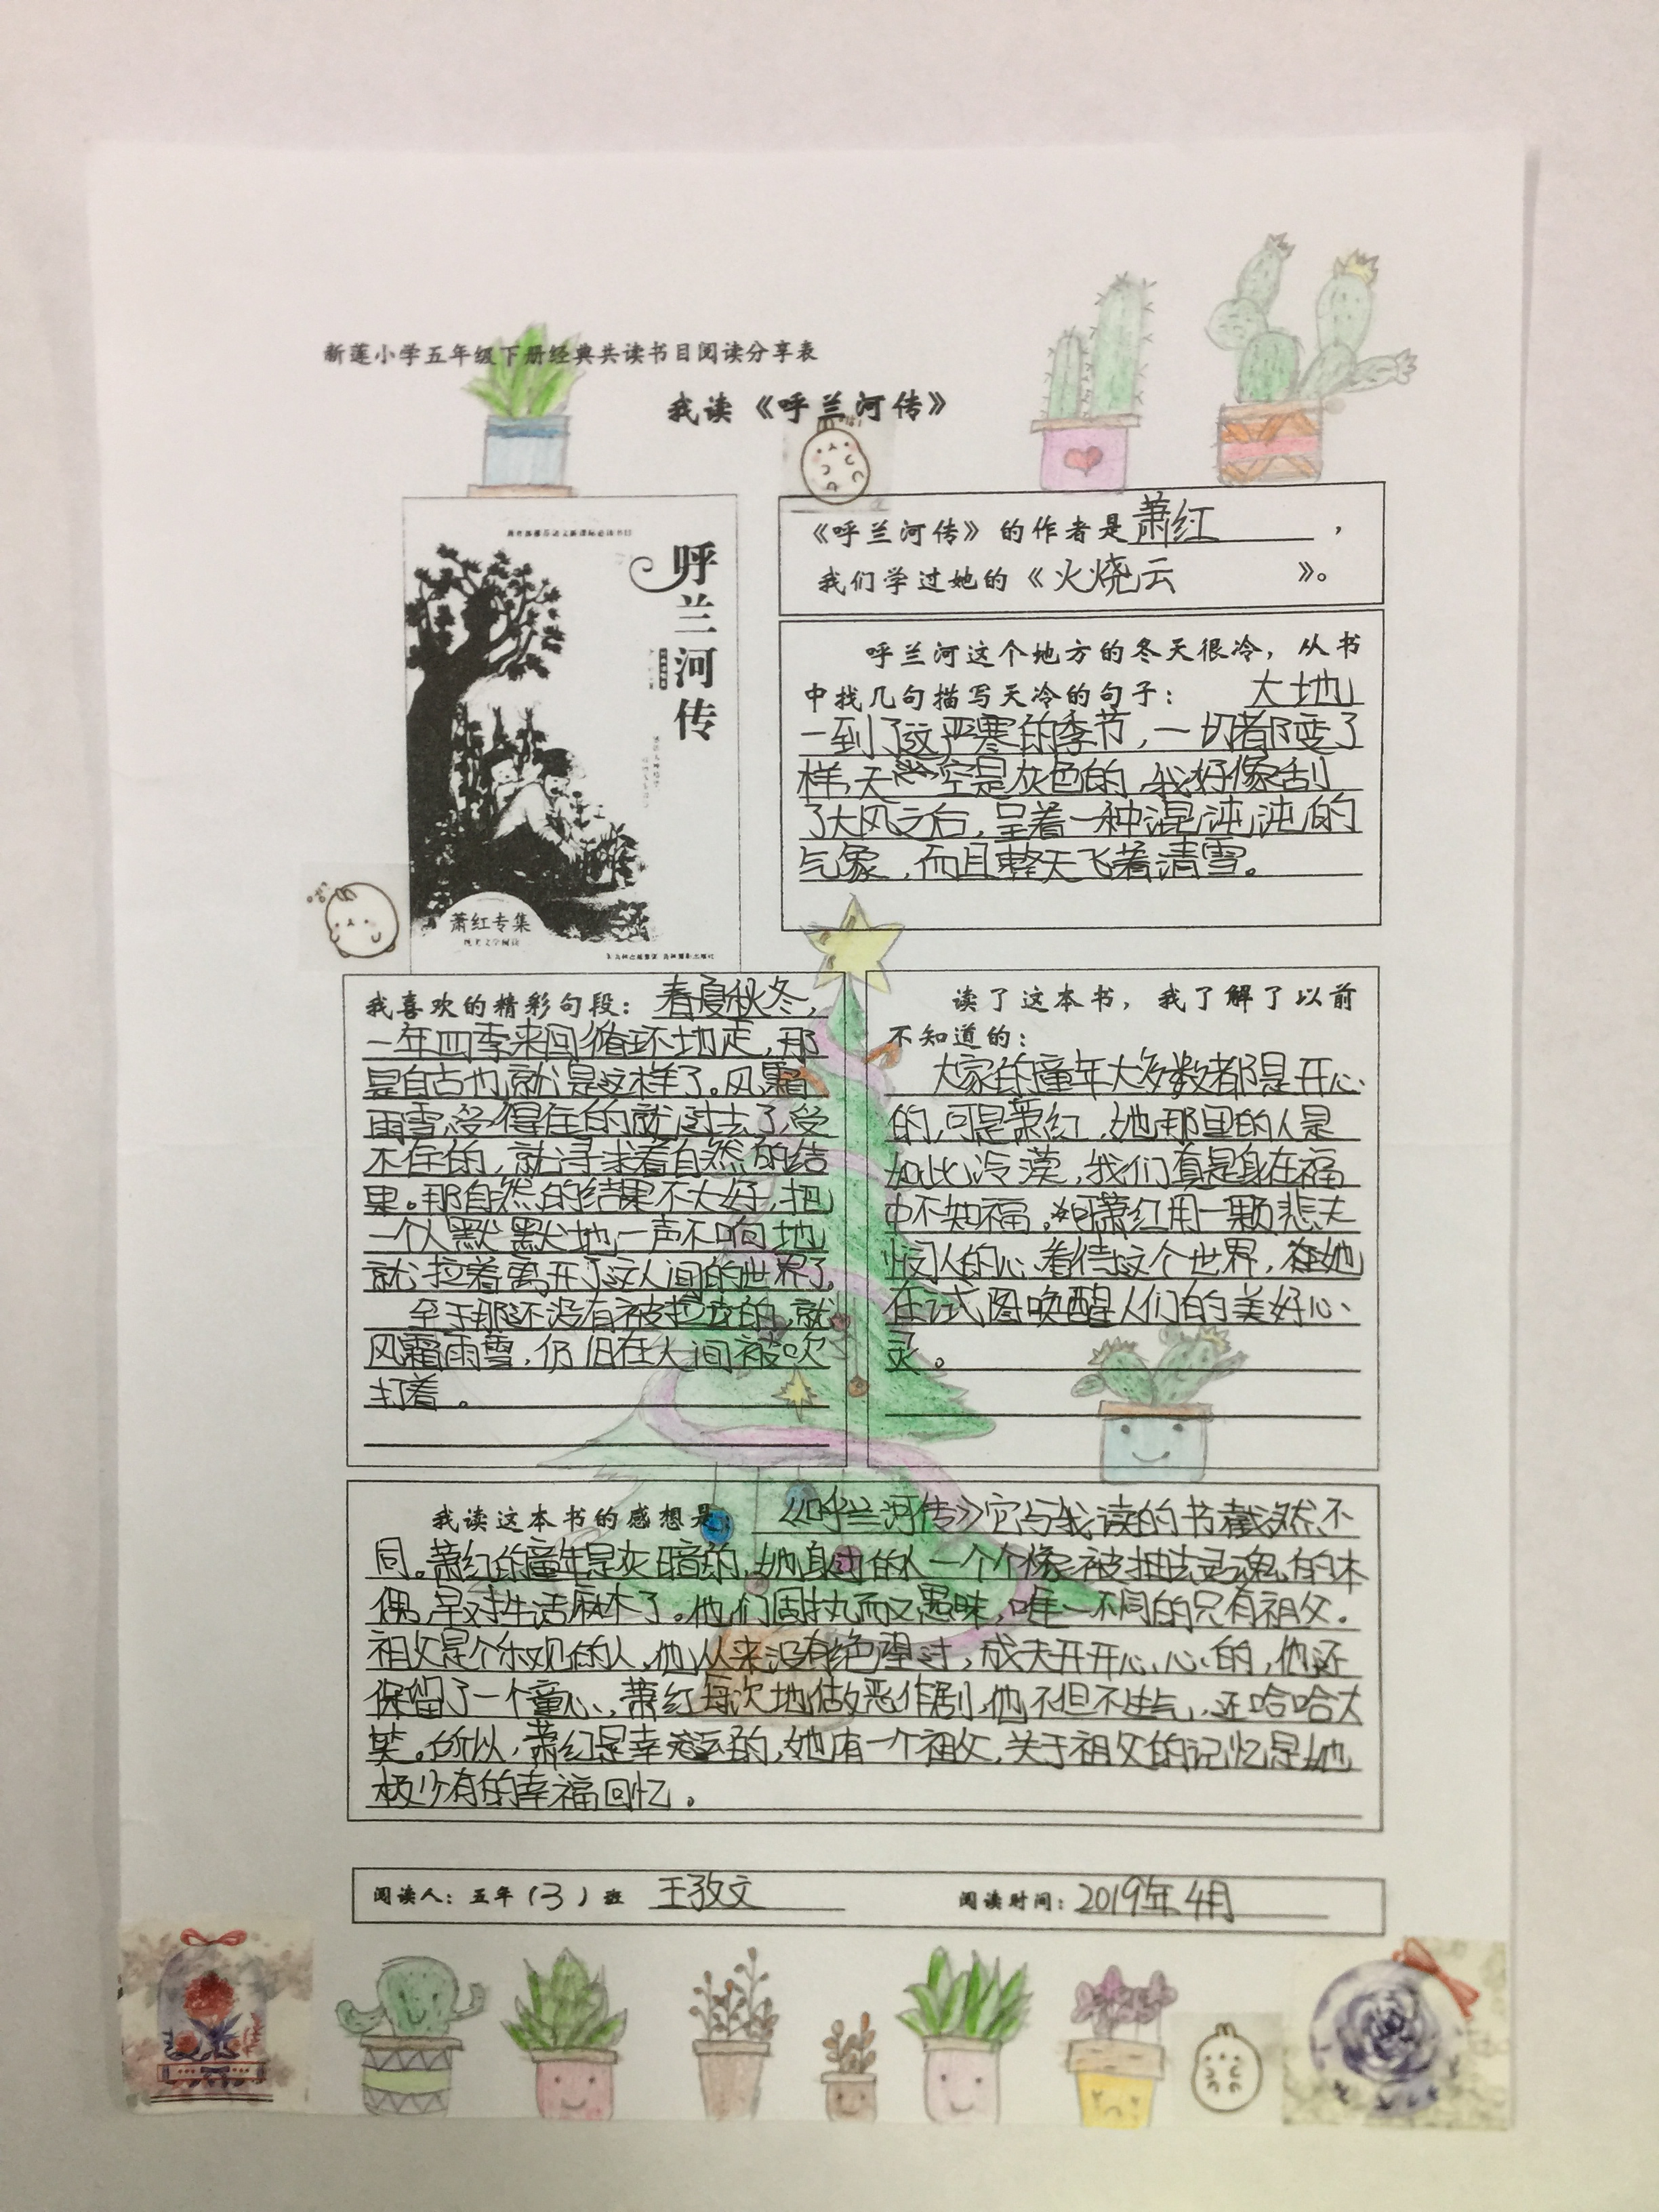 新莲小学五年级下册经典共读书目阅读分享表
我读《呼兰河传》
呼兰河传
萧红专集
《呼兰河传》的作者是萧红，
我们学过她的《火烧云》。
呼兰河这个地方的冬天很冷，从书
中找几句描写天冷的句子：大地
一到了这严寒的季节，一切都变了
样，天空是灰色的，我好像刮
了大风之后，呈着一种混沌沌的
气象，而且整天飞着清雪。
我喜欢的精彩句段：春夏秋冬，
一年四季来回循环地走，那
是自古也就是这样了。风霜
雨雪，受得住的就过去了，受
不住的，就寻求着自然的结
果。那自然的结果不大好，把
一个人默默地一声不响地
就拉着离开了这人间的世界了。
至于那还没有被拉去的，就
风霜雨雪，仍旧在人间被吹
打着。
读了这本书，我了解了以前
不知道的：
大家的童年大多数都是开心
的，可是萧红，她那里的人是
如此冷漠，我们真是身在福
中不知福。萧红用一颗悲天
悯人的心看待这个世界，在她
在试图唤醒人们的美好心
灵。
我读这本书的感想是：《呼兰河传》它与我读的书截然不
同。萧红的童年是灰暗的，她身边的人一个个像被抽去灵魂的木
偶，早对生活麻木了。他们固执而又愚昧，唯一不同的只有祖父。
祖父是个乐观的人，他从来没有绝望过，成天开开心心的，他还
保留了一个童心，萧红每次地做恶作剧，他不但不生气，还哈哈大
笑。所以，萧红是幸运的，她有一个祖父，关于祖父的记忆是她
极少有的幸福回忆。
阅读人：五年（3）班 王孜文 阅读时间：2019年4月